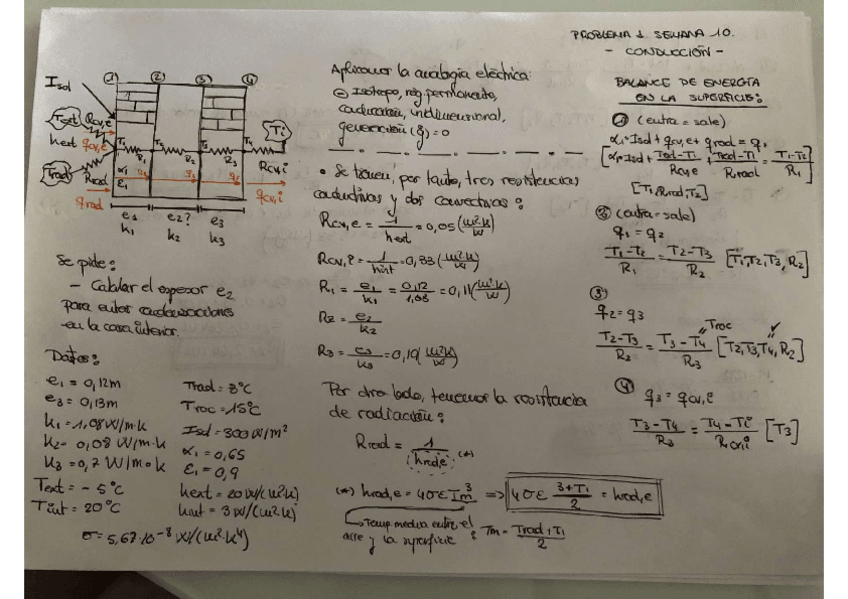 PROBLEMA 1 SEMANA 10.
- CONDUCCIÓN -
① ② ③ ④
Isol
Text Rcv,e
hext qcv,e
T1 T2 T3 T4 Ti
R1 R2 R3 Rcv,i
Trad Rrad
α1
ε1
qrad
qcv,i
e1 e2? e3
k1 k2 k3
Se pide:
- Calcular el espesor e2
para evitar condensaciones
en la cara interior.
Datos:
e1 = 0,12m
e3 = 0,13m
k1 = 1,08 W/m·k
k2 = 0,08 W/m·k
k3 = 0,7 W/m·k
Text = - 5°C
Tint = 20°C
Trad = 3°C
Troc = 15°C
Isol = 300 W/m²
α1 = 0,65
ε1 = 0,9
hext = 20 W/(m²k)
hint = 3 W/(m²k)
σ = 5,67·10⁻⁸ W/(m²·k⁴)
Aplicamos la analogía eléctrica:
⊖ Isótropo, rég permanente,
conducción, unidimensional,
generación (q̇) = 0
• Se tienen, por tanto, tres resistencias
conductivas y dos convectivas:
Rcv,e = 1/hext = 0,05 (m²k/W)
Rcv,i = 1/hint = 0,33 (m²k/W)
R1 = e1/k1 = 0,12/1,08 = 0,11 (m²k/W)
R2 = e2/k2
R3 = e3/k3 = 0,19 (m²k/W)
Por otro lado, tenemos la resistencia
de radiación:
Rrad = 1/hrad,e (*)
(*) hrad,e = 4σε Tm³ => 4σε (3+T1)/2 = hrad,e
Temp. media entre el
aire y la superficie : Tm = (Trad + T1)/2
BALANCE DE ENERGÍA
EN LA SUPERFICIE:
① (entra = sale)
α1·Isol + qcv,e + qrad = q1
[α1·Isol + (Text-T1)/Rcv,e + (Trad-T1)/Rrad = (T1-T2)/R1]
[T1, Rrad, T2]
② (entra = sale)
q1 = q2
(T1-T2)/R1 = (T2-T3)/R2 [T1, T2, T3, R2]
③
q2 = q3
Troc
(T2-T3)/R2 = (T3-T4)/R3 [T2, T3, T4, R2] ✓
④ q3 = qcv,i
(T3-T4)/R3 = (T4-Ti)/Rcv,i [T3]